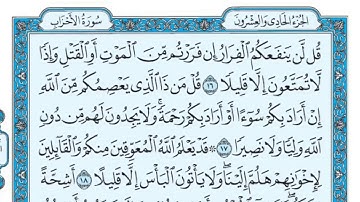 الجزء الحادي والعشرون سورة الأحزاب
قُل لَّن يَنفَعَكُمُ ٱلْفِرَارُ إِن فَرَرْتُم مِّنَ ٱلْمَوْتِ أَوِ ٱلْقَتْلِ وَإِذًا
لَّا تُمَتَّعُونَ إِلَّا قَلِيلًا ١٦ قُلْ مَن ذَا ٱلَّذِى يَعْصِمُكُم مِّنَ ٱللَّهِ
إِنْ أَرَادَ بِكُمْ سُوٓءًا أَوْ أَرَادَ بِكُمْ رَحْمَةً وَلَا يَجِدُونَ لَهُم مِّن دُونِ
ٱللَّهِ وَلِيًّا وَلَا نَصِيرًا ١٧ ۞ قَدْ يَعْلَمُ ٱللَّهُ ٱلْمُعَوِّقِينَ مِنكُمْ وَٱلْقَآئِلِينَ
لِإِخْوَٰنِهِمْ هَلُمَّ إِلَيْنَا وَلَا يَأْتُونَ ٱلْبَأْسَ إِلَّا قَلِيلًا ١٨ أَشِحَّةً